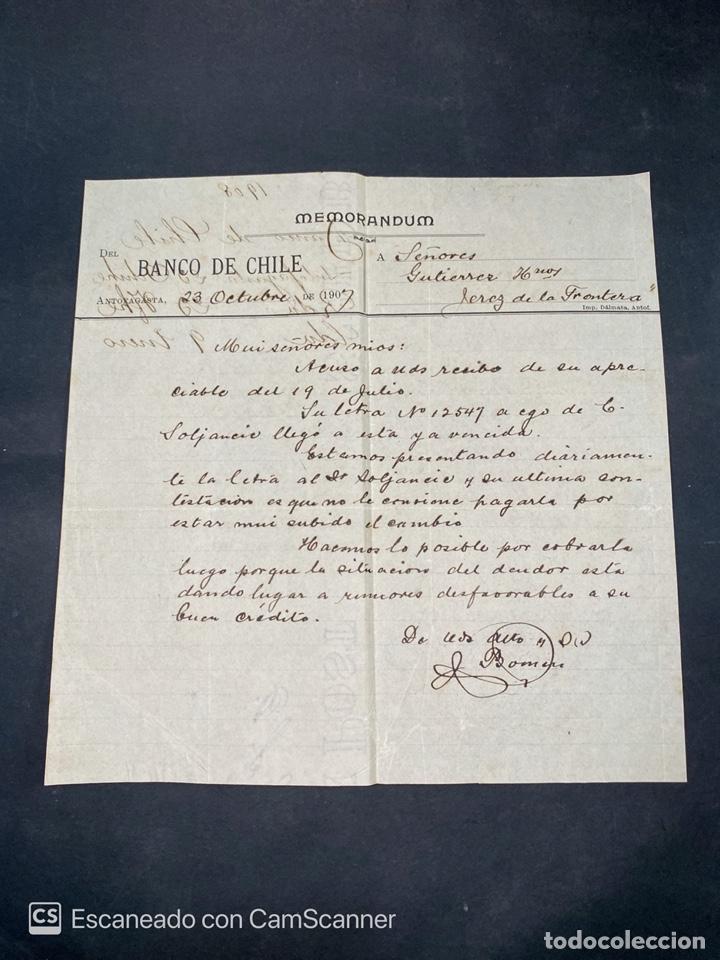 MEMORANDUM
DEL
BANCO DE CHILE
ANTOFAGASTA, 23 Octubre DE 190
A Señores
Gutierrez Hnos
Jerez de la Frontera"
Imp. Dálmata, Antof.
1908
Mui señores mios:
Acuso a uds recibo de su apre-
ciable del 19 de Julio.
Su letra No 12547 a cgo de C.
Soljancic llegó a esta ya vencida.
Estamos presentando diáriamen-
te la letra al Sr Soljancic y su ultima con-
testacion es que no le conviene pagarla por
estar mui subido el cambio
Hacemos lo posible por cobrarla
luego porque la situacion del deudor esta
dando lugar a rumores desfavorables a su
buen crédito.
De uds Atto y SS
CS Escaneado con CamScanner
todocoleccion